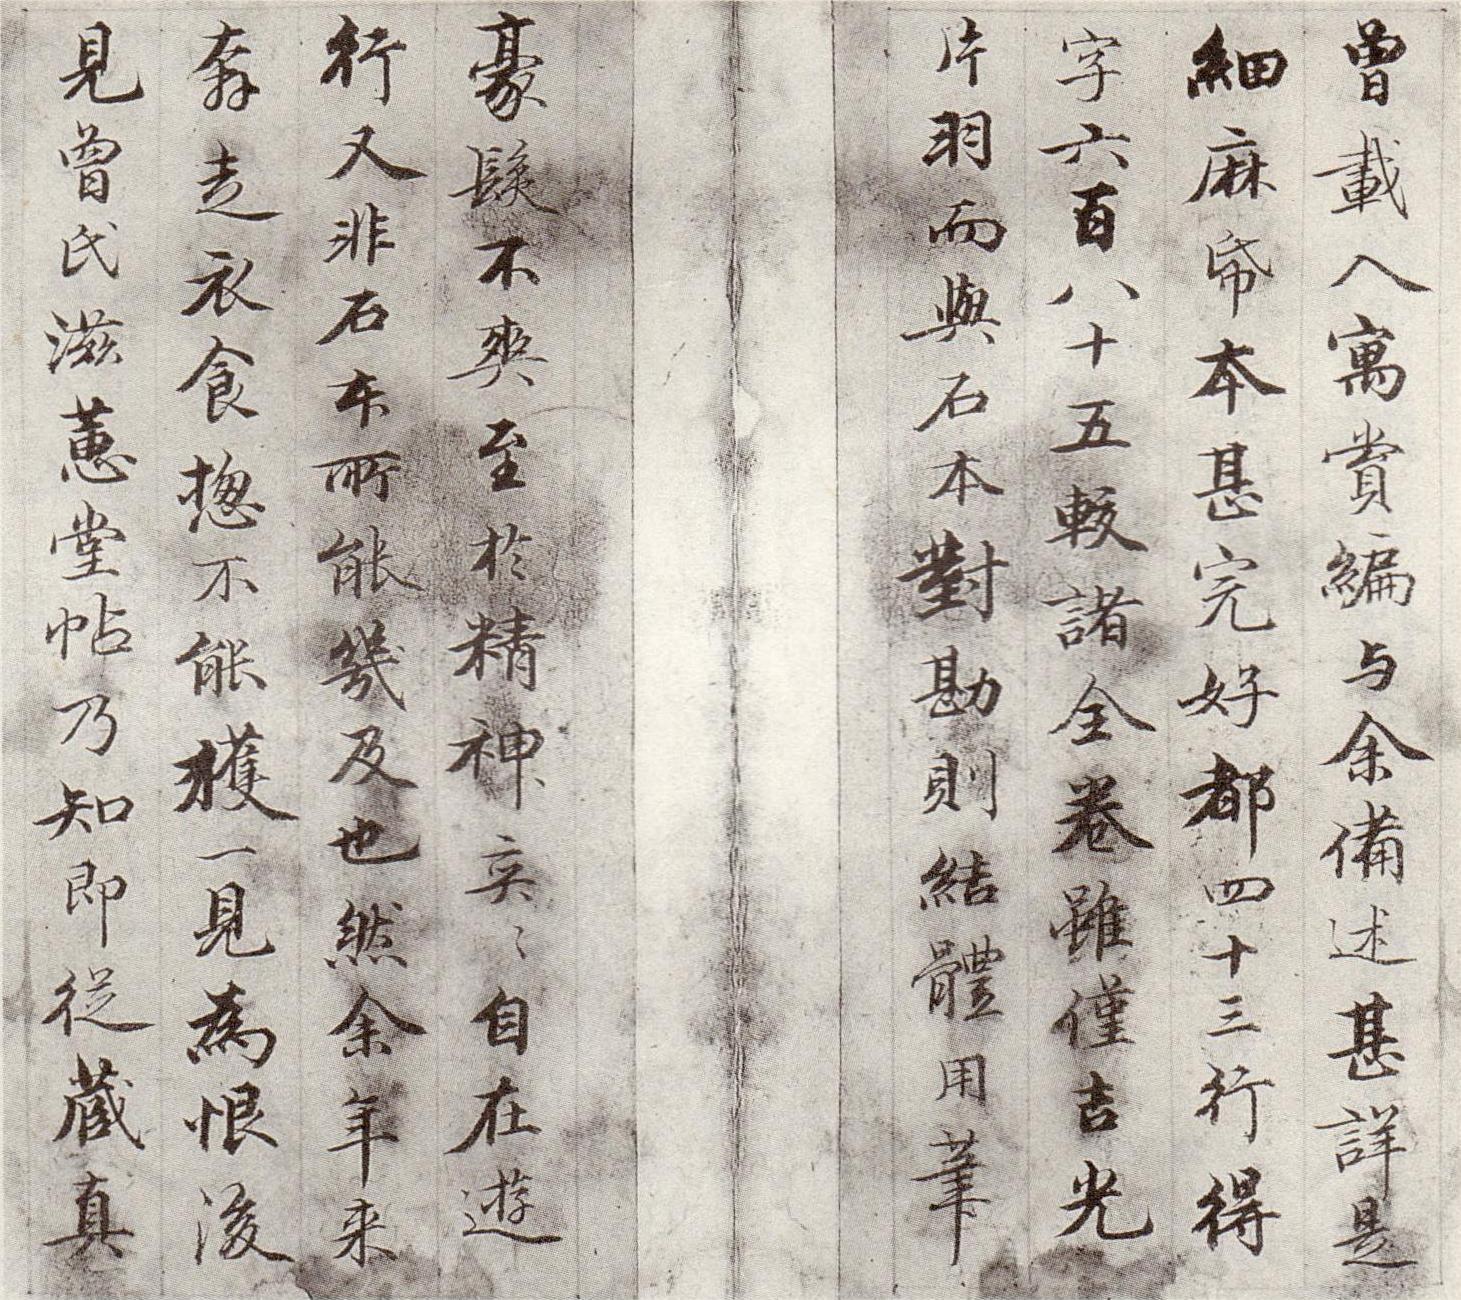 曾載入寓賞編与余備述甚詳是
細麻帋本甚完好都四十三行得
字六百八十五較諸全卷雖僅吉光
片羽而與石本對勘則結體用筆
豪髮不爽至於精神奕〻自在遊
行又非石本所能幾及也然余年来
奔走衣食揔不能獲一見為恨後
見曾氏滋蕙堂帖乃知即從藏真